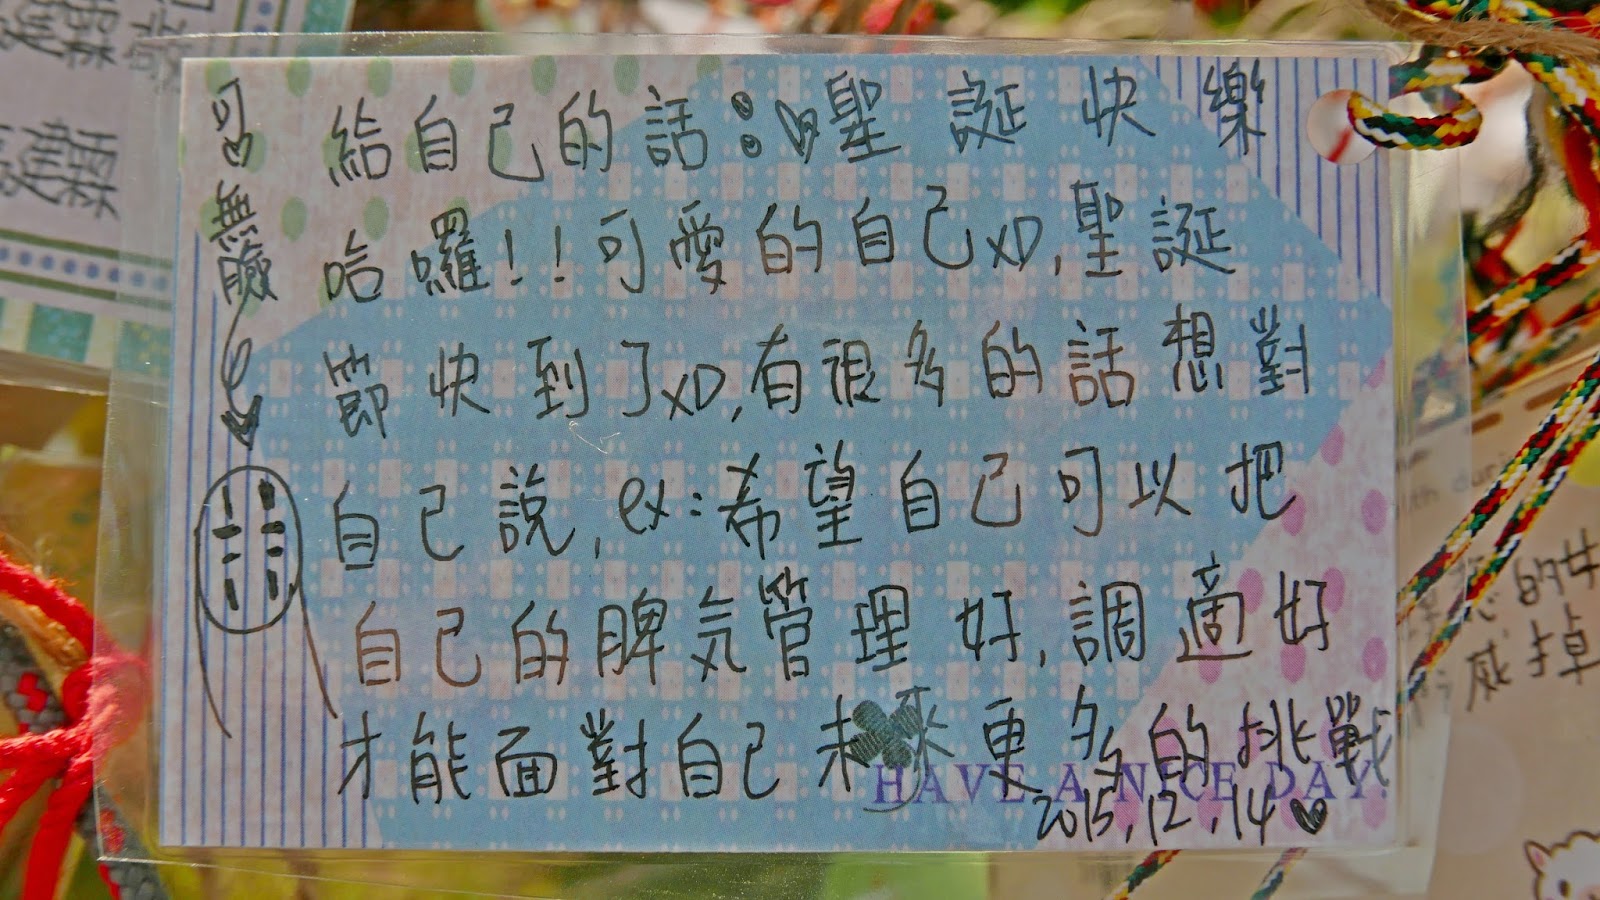 給自己的話：聖誕快樂
哈囉！！可愛的自己XD,聖誕
節快到了XD,有很多的話想對
自己說,ex:希望自己可以把
自己的脾気管理好,調適好
才能面對自己未來更多的挑戰
HAVE A NICE DAY.
2015.12.14
無臉